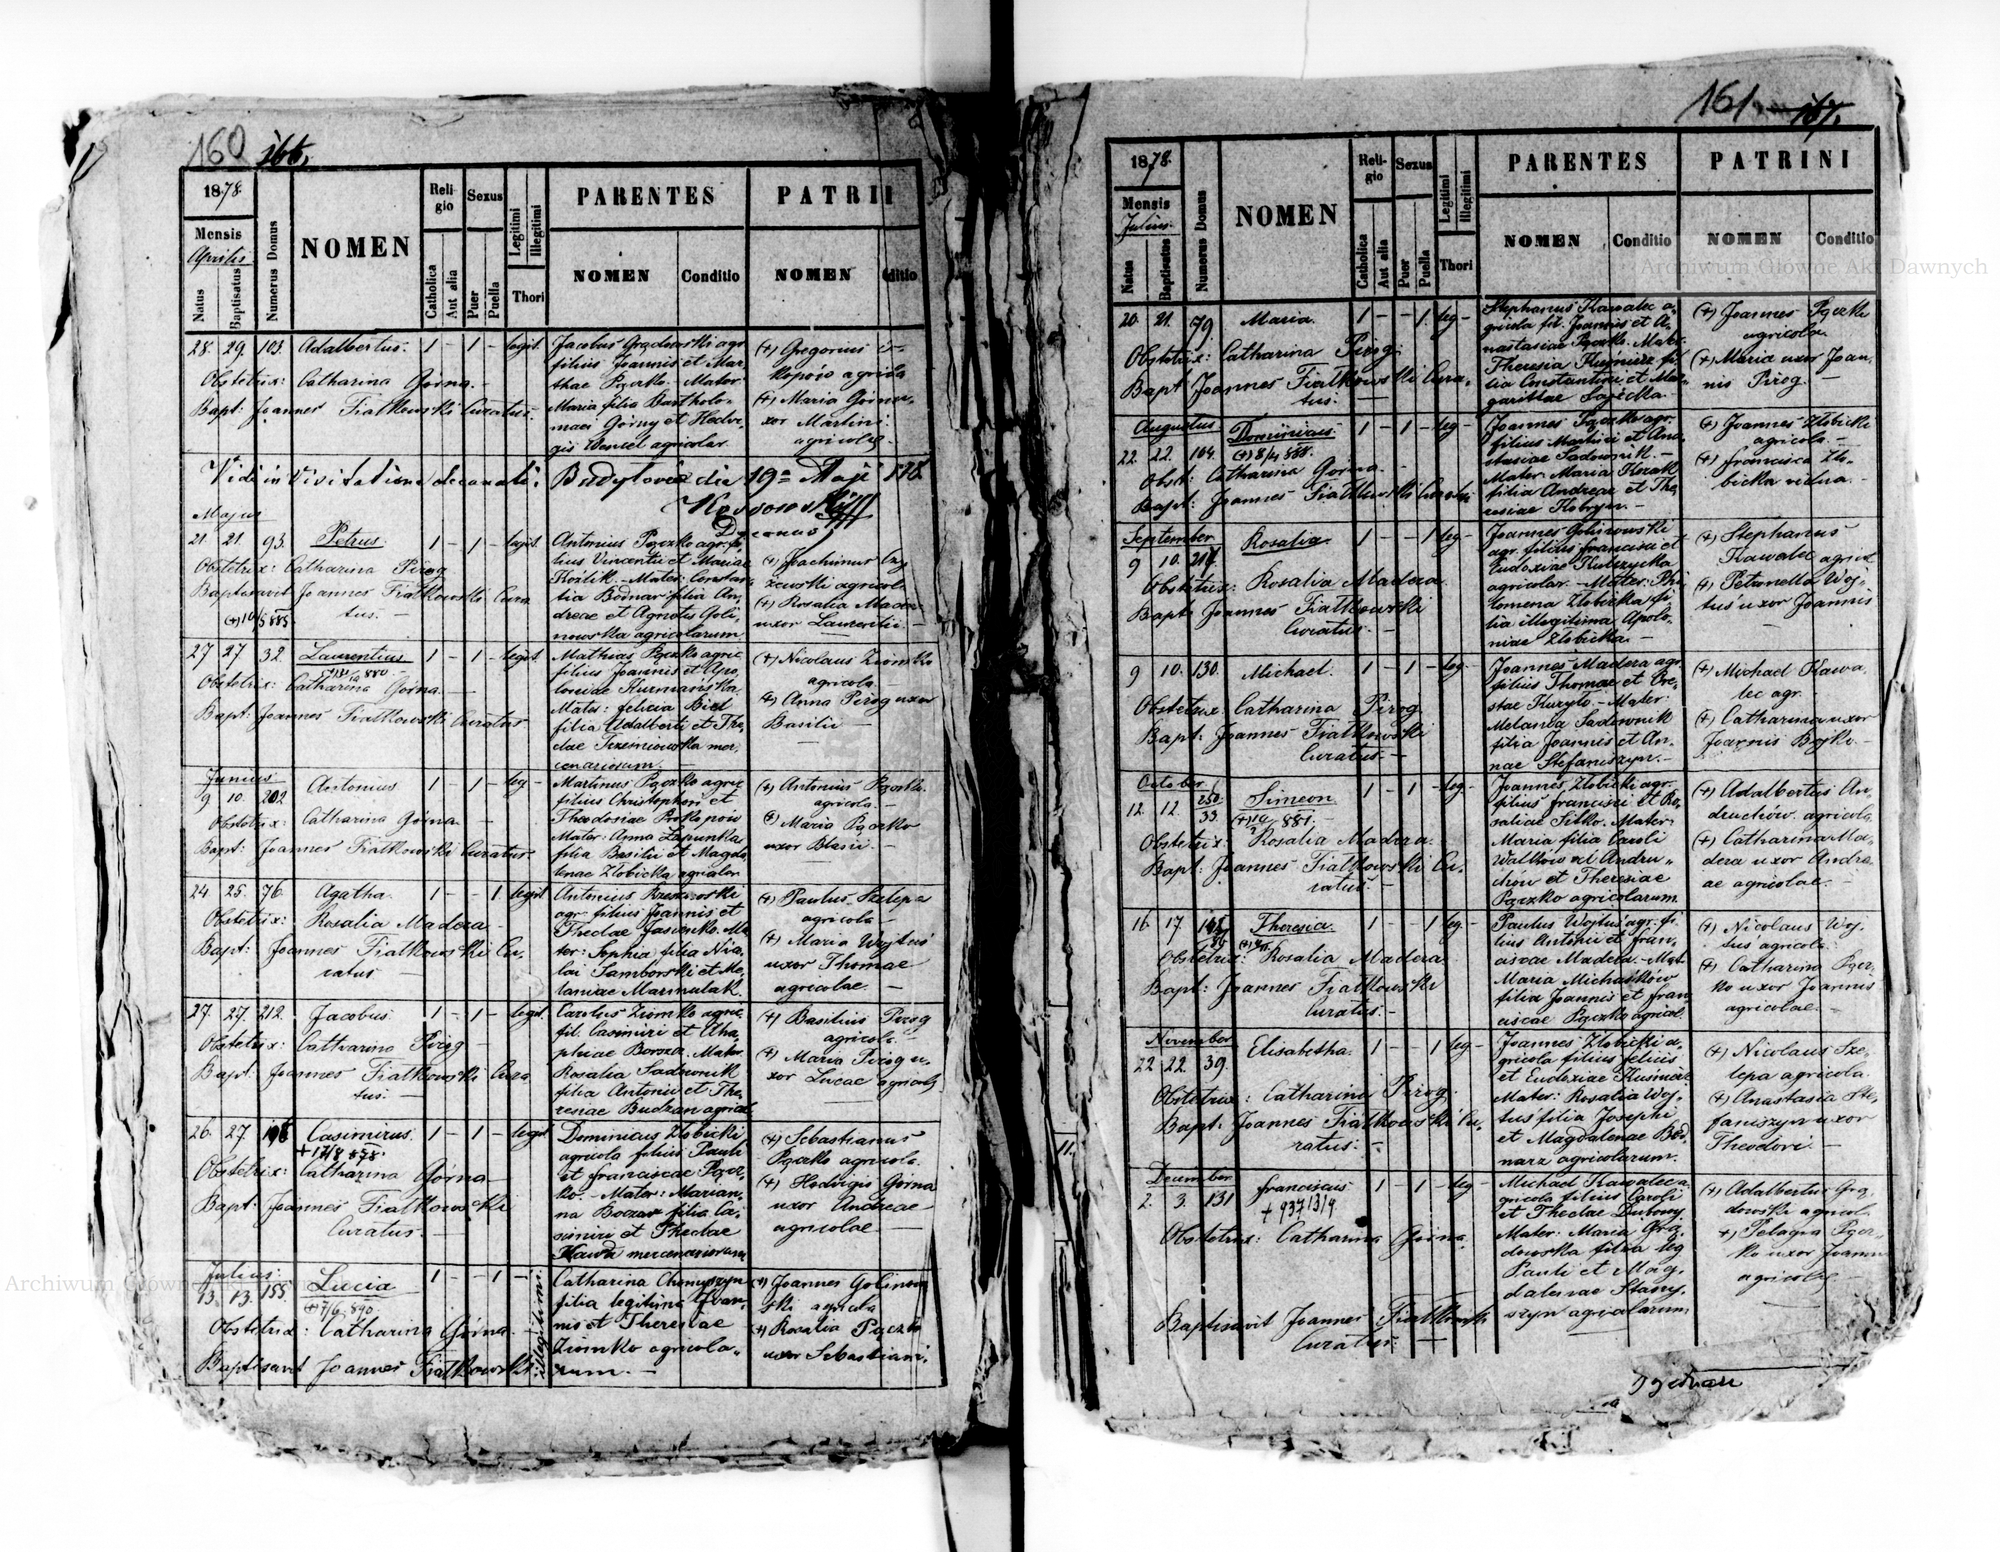 160 166.
1878.
Mensis
Aprilis
Natus
Baptisatus
Numerus Domus
NOMEN
Religio
Catholica
Aut alia
Sexus
Puer
Puella
Legitimi
Illegitimi
Thori
PARENTES
NOMEN
Conditio
PATRII
NOMEN
ditio
28. 29. 103. Adalbertus. 1 - 1 - legit.
Obstetrix: Catharina Górna. -
Bapt: Joannes Fiałkowski Curatus. -
Jacobus Grądowski agr.
filius Joannis et Mar-
thae Pączko. Mater
Maria filia Bartholo-
maei Górny et Hedvi-
gis Wencel agricolar.
(+) Gregorius
kopów agricola
(+) Maria Górna u-
xor Martini
agricolae -
Vidi in Visitatione decanali.
Budyłoviae die 19a Maji 878.
Decanus
Majus
21. 21. 93. Petrus. 1 - 1 - legit.
Obstetrix: Catharina Pirog
Baptisavit Joannes Fiałkowski Cura
tus. -
(+) 10/5 885.
Antonius Pączko agr. fi-
lius Vincentii et Mariae
Kozlik. - Mater: Constan
tia Bodnar filia An-
dreae et Agnetis Goli-
nowska agricolarum
(+) Joachimus
żewski agricol.
(+) Rosalia Mader
uxor Laurentii. -
27 27 32. Laurentius 1 - 1 - legit.
Obstetrix: Catharina Górna. -
Bapt: Joannes Fiałkowski Curatus
Mathias Pączko agric
filius Joannis et Apo-
loniae Kurmańska
Mater: felicia Biel
filia Adalberti et The-
clae mer-
cenariorum. -
(+) Nicolaus Ziomko
agricola -
(+) Anna Pirog uxor
Basilii -
Junius
9 10. 202 Antonius 1 - 1 - leg -
Obstetrix: Catharina Górna -
Bapt: Joannes Fiałkowski Curatus
Martinus Pączko agric
filius Christophori et
Theodosiae Prokopów
Mater: Anna
filia Basilii et Magda
lenae Złobicka agricolar
(+) Antonius Pączko.
agricola. -
(+) Maria Pączko
uxor Blasii -
24 25. 76. Agatha. 1 - - 1 legit
Obstetrix: Rosalia Madera -
Bapt: Joannes Fiałkowski Cu-
ratus -
Antonius Rzeszowski
agr. filius Joannis et
Theclae Jasionko. Ma
ter: Sophia filia Nico
lai Samborski et Me
laniae Marmulak.
(+) Paulus Szelepa
agricola -
(+) Maria Wojtuś
uxor Thomae
agricolae. -
27. 27. 212. Jacobus. 1 - 1 - legit.
Obstetrix: Catharina Pirog -
Bapt: Joannes Fiałkowski Cura
tus. -
Carolus Ziomko agric.
fil. Casimiri et Aga-
phiae Borsza. Mater
Rosalia Sadownik
filia Antonii et The-
resiae Budzan agricol
(+) Basilius Pirog
agricola. -
(+) Maria Pirog u-
xor Lucae agricolae
26. 27. 196 Casimirus. 1 - 1 - legit.
+ 17/8 878.
Obstetrix: Catharina Górna -
Bapt: Joannes Fiałkowski
Curatus. -
Dominicus Złobicki
agricola filius Pauli
et franciscae Pącz-
ko. - Mater: Marian-
na Boczar filia Ca-
simiri et Theclae
Kawa mercenariorum
(+) Sebastianus
Pączko agricola.
(+) Hedvigis Górna
uxor Andreae
agricolae -
Julius.
13. 13. 155. Lucia 1 - - 1 - illegitimi.
(+) 7/6 890.
Obstetrix: Catharina Górna. -
Baptisavit Joannes Fiałkowski.
Catharina Chomyszyn
filia legitima Joan-
nis et Theresiae
Ziomko agricola-
rum. -
(+) Joannes Golinow
ski agricola
(+) Rosalia Pączko
uxor Sebastiani.
161 167.
1878.
Mensis
Julius.
Natus
Baptisatus
Numerus Domus
NOMEN
Religio
Catholica
Aut alia
Sexus
Puer
Puella
Legitimi
Illegitimi
Thori
PARENTES
NOMEN
Conditio
PATRINI
NOMEN
Conditio
20. 21. 79. Maria. 1 - - 1. leg -
Obstetrix: Catharina Pirog.
Bapt Joannes Fiałkowski Cura-
tus. -
Stephanus Kawalec a-
gricola fil. Joannis et A-
nastasiae Pączko. Mater
Theresia Kuśnierz fi-
lia Constantini et Mar-
garittae
(+) Joannes Pączko
agricola.
(+) Maria uxor Joan-
nis Pirog. -
Augustus
22. 22. 104. Dominicus 1 - 1 - leg -
(+) 8/4 885.
Obst: Catharina Górna. -
Bapt: Joannes Fiałkowski Curatus
Joannes Pączko agr.
filius Martini et Ana
stasiae Sadownik. -
Mater Maria Kozak
filia Andreae et The
resiae Kobryn. -
(+) Joannes Złobicki
agricola. -
(+) francisca Zło-
bicka vidua. -
September
9 10. 216. Rosalia 1 - - 1 leg -
Obstetrix: Rosalia Madera.
Bapt Joannes Fiałkowski
Curatus. -
Joannes Golinowski
agr. filius francisci et
Eudoxiae
agricolar. - Mater: Phi
lomena Złobicka fi
lia illegitima Apolo-
niae Złobicka. -
(+) Stephanus
Kawalec agricol
(+) Petronella Woj-
tuś uxor Joannis
-
9 10. 130. Michael. 1 - 1 - leg. -
Obstetrix: Catharina Pirog.
Bapt: Joannes Fiałkowski
Curatus. -
Joannes Madera agr.
filius Thomae et Ore-
stae Kuryło. - Mater
Melania Sadownik
filia Joannis et An-
nae Stefaniszyn. -
(+) Michael Kawa
lec agr.
(+) Catharina uxor
Joannis Bojko. -
October
12. 12. 250. 33. Simeon 1 - 1 - leg -
Obstetrix: Rosalia Madera.
Bapt: Joannes Fiałkowski Cu-
ratus. -
Joannes Złobicki agr.
filius francisci et Ro-
saliae Fitko. Mater
Maria filia Caroli
Walków vel Andru-
chów et Theresiae
Pączko agricolarum.
(+) Adalbertus An-
druchów. agricola,
(+) Catharina Ma-
dera uxor Andre-
ae agricolae. -
16. 17 Theresia. 1 - - 1 leg -
Obstetrix: Rosalia Madera
Bapt: Joannes Fiałkowski
Curatus. -
Paulus Wojtuś agr. fi
lius Antonii et fran-
ciscae Madera. - Mat
Maria Michałków
filia Joannis et fran
ciscae Pączko agricol.
(+) Nicolaus Woj-
tuś agricola.
(+) Catharina Pącz-
ko uxor Joannis
agricolae. -
November
22 22. 39. Elisabetha. 1 - - 1 leg -
Obstetrix: Catharina Pirog.
Bapt: Joannes Fiałkowski Cu-
ratus. -
Joannes Złobicki a-
gricola filius felicis
et Eudoxiae Kuśnierz
Mater: Rosalia Woj-
tuś filia Josephi
et Magdalenae Bed
narz agricolarum.
(+) Nicolaus Sze-
lepa agricola.
(+) Anastasia Ste-
faniszyn uxor
Theodori. -
December
2. 3. 131 franciscus 1 - 1 - leg -
+ 937 13/9
Obstetrix: Catharina Górna.
Baptisavit Joannes Fiałkowski
Curatus. -
Michael Kawalec a
gricola filius Caroli
et Theclae Dubowy
Mater: Maria Grą
dowska filia leg
Pauli et Mag-
dalenae Stany-
szyn agricolarum
(+) Adalbertus Grą
dowski agricol.
(+) Pelagia Pącz-
ko uxor Joannis
agricolae -
11.
Archiwum Główne Akt Dawnych
Archiwum Główne Akt Dawnych